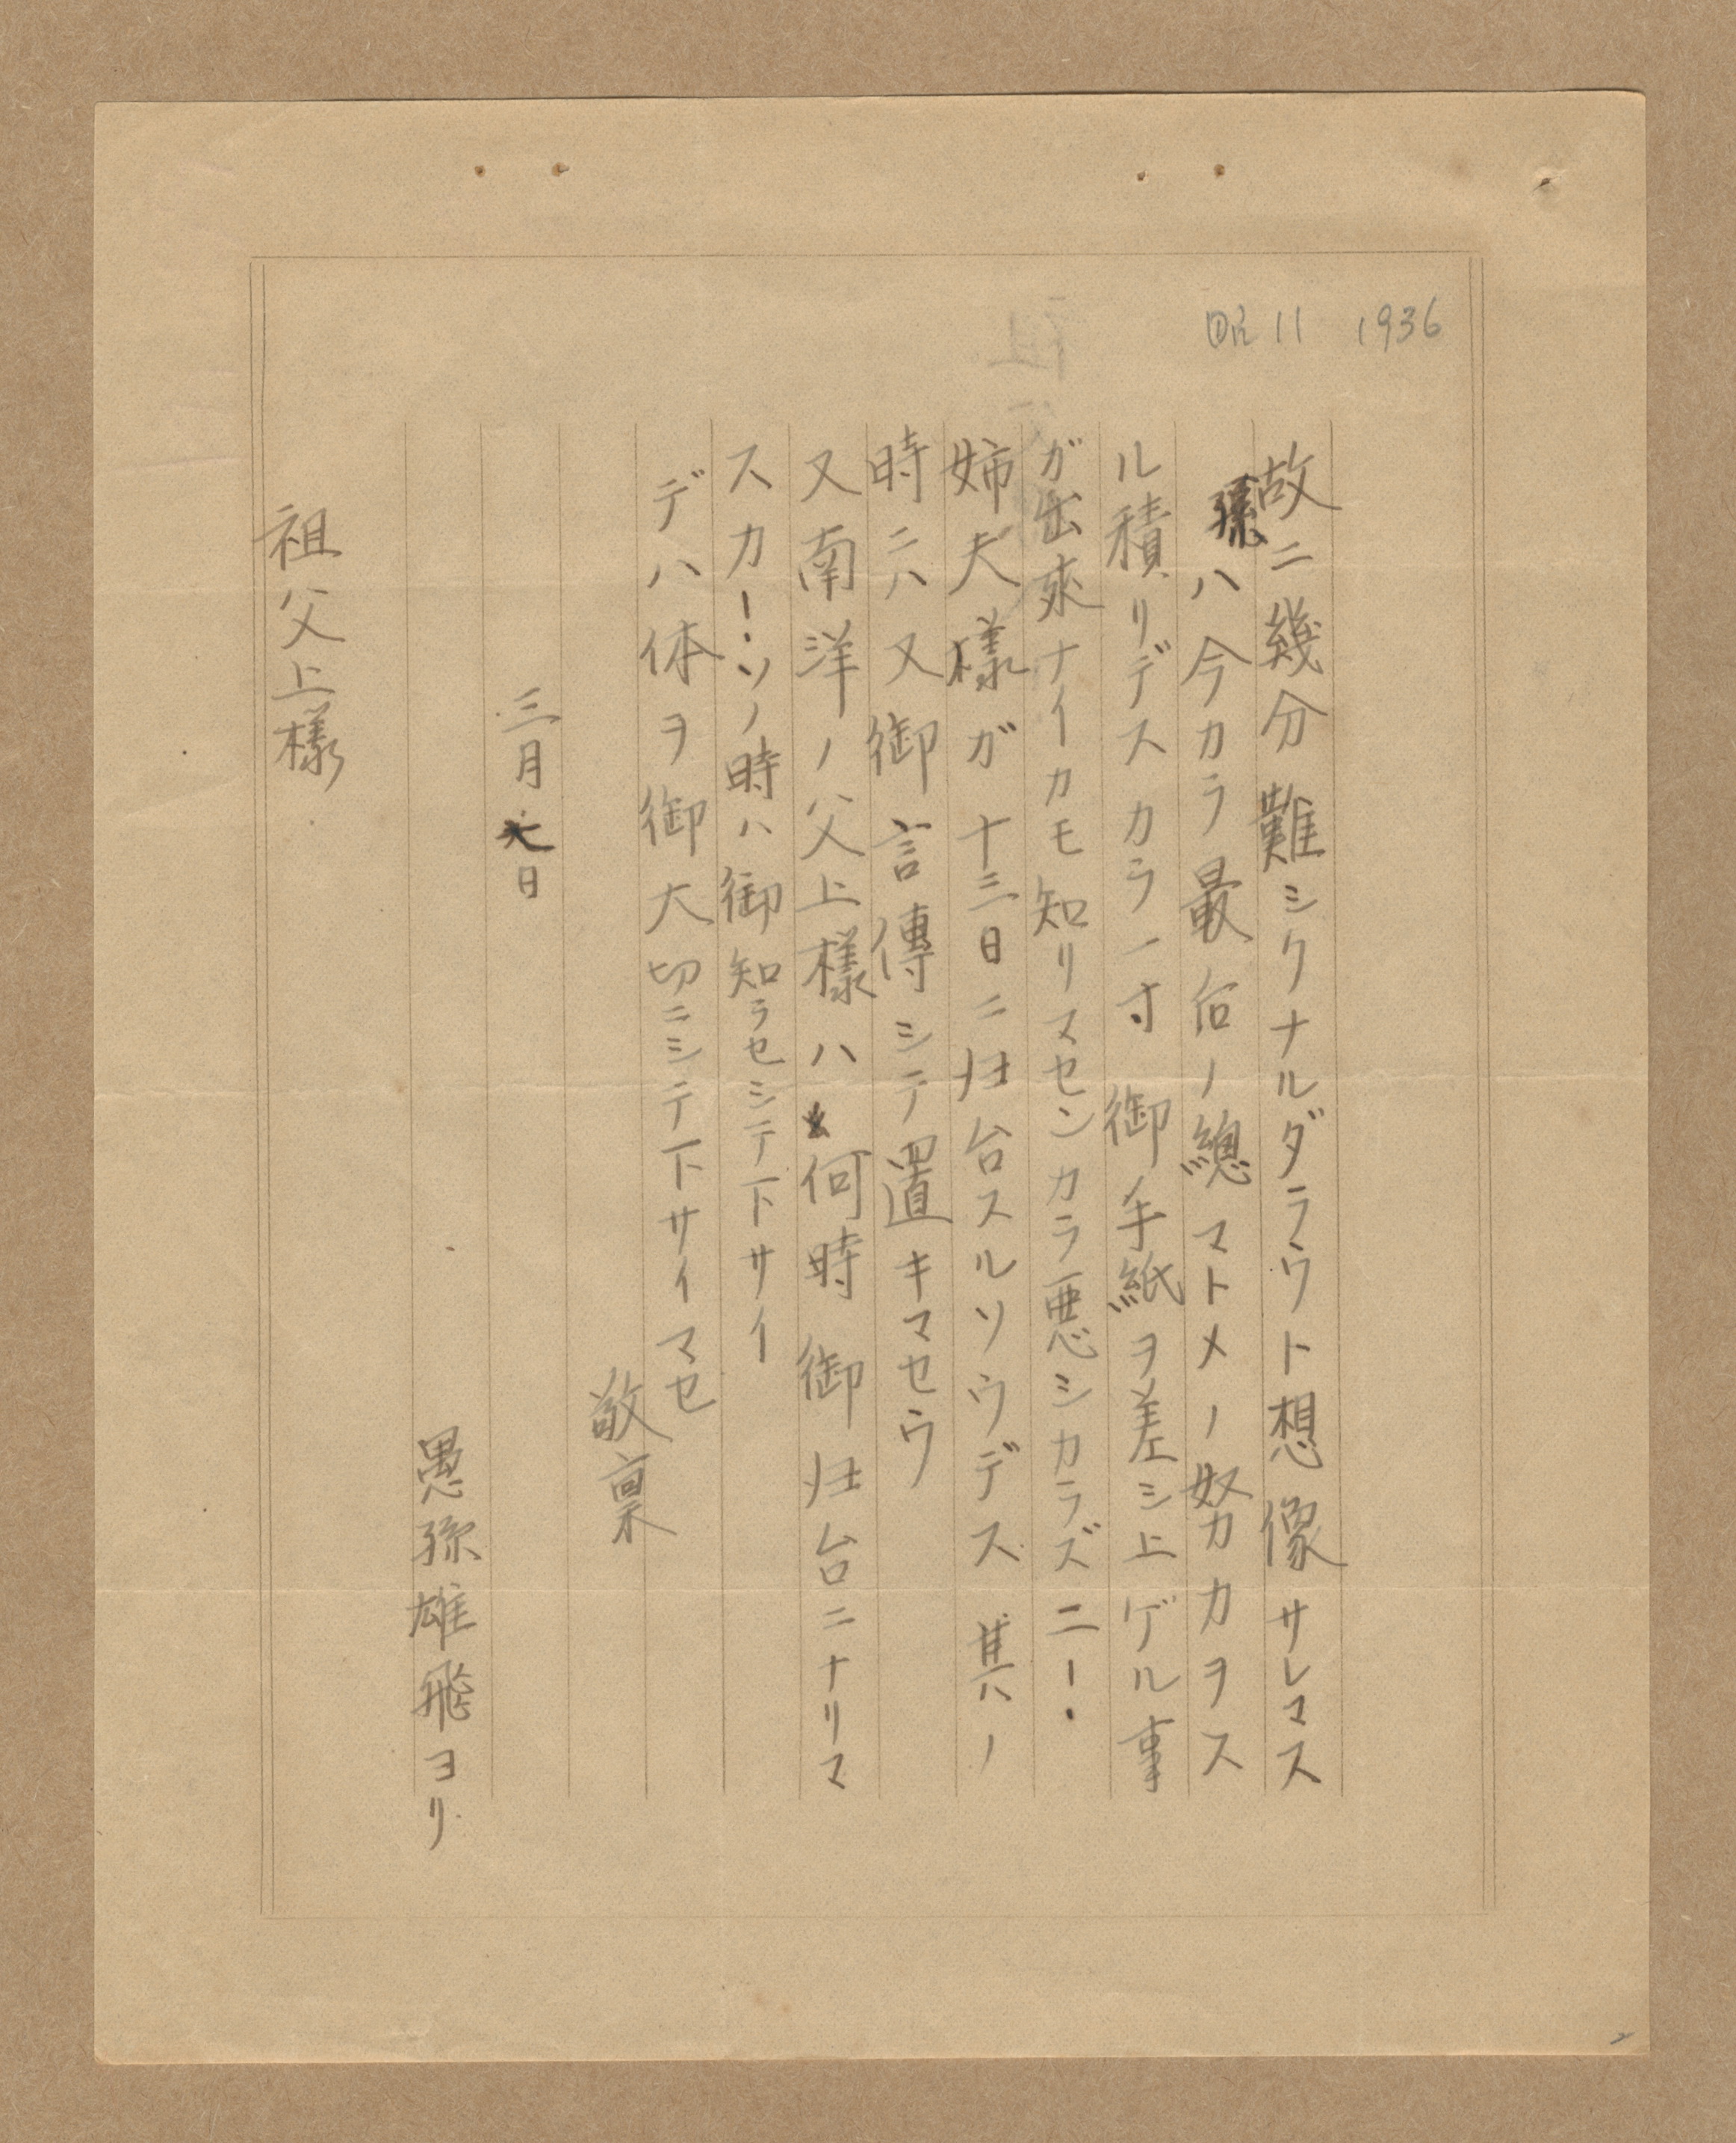 昭11 1936
故ニ幾分難シクナルダラウト想像サレマス
孫ハ今カラ最后ノ總マトメノ努力ヲス
ル積リデスカラ一寸御手紙ヲ差シ上ゲル事
ガ出來ナイカモ知リマセンカラ悪シカラズニー.
姉夫様ガ十三日ニ归台スルソウデス其ノ
時ニハ又御言傳シテ置キマセウ
又南洋ノ父上様ハ何時御归台ニナリマ
スカー.ソノ時ハ御知ラセシテ下サイ
デハ体ヲ御大切ニシテ下サイマセ
敬稟
三月 日
愚孫雄飛ヨリ
祖父上様